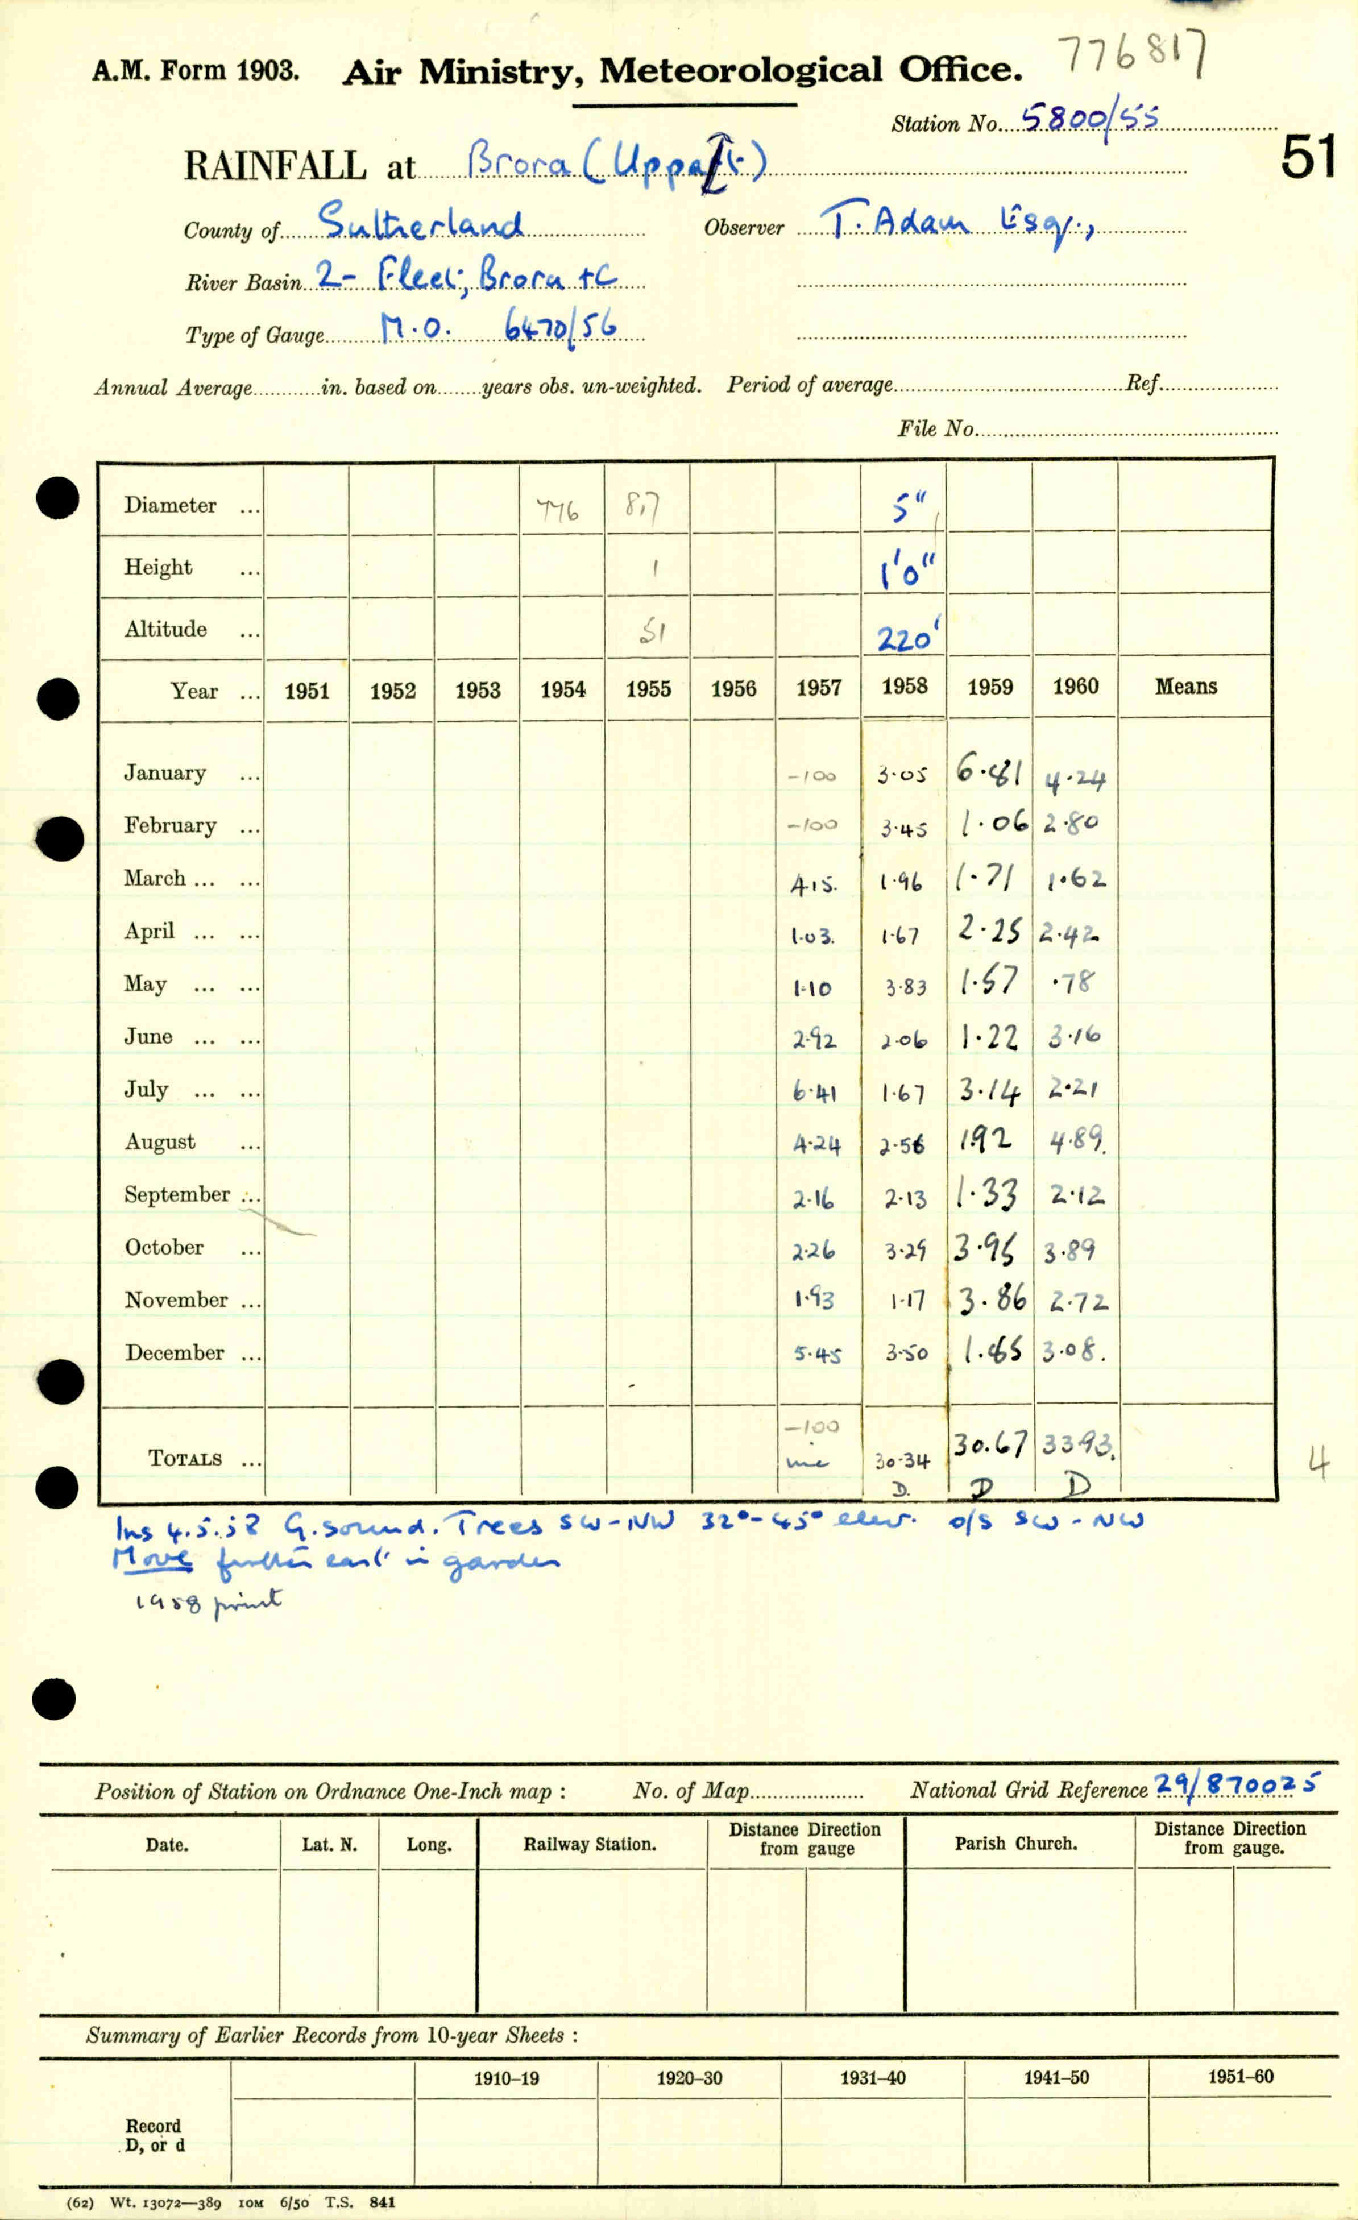 776817
A.M. Form 1903. Air Ministry, Meteorological Office.
Station No. 5800/55
51
RAINFALL at Brora (Uppat)
County of Sutherland Observer T. Adam Esqr.,
River Basin 2- Fleet; Brora +C
Type of Gauge M.O. 6470/56
Annual Average in. based on years obs. un-weighted. Period of average Ref.
File No.
Diameter ... 776 817 5"
Height ... 1 1'0"
Altitude ... 51 220'
Year ... 1951 1952 1953 1954 1955 1956 1957 1958 1959 1960 Means
January ... -100 3·05 6·81 4·24
February ... -100 3·45 1·06 2·80
March ... ... 4·15. 1·96 1·71 1·62
April ... ... 1·03. 1·67 2·25 2·42
May ... ... 1·10 3·83 1·57 ·78
June ... ... 2·92 2·06 1·22 3·16
July ... ... 6·41 1·67 3·14 2·21
August ... 4·24 2·56 1·92 4·89.
September ... 2·16 2·13 1·33 2·12
October ... 2·26 3·29 3·95 3·89
November ... 1·93 1·17 3·86 2·72
December ... 5·45 3·50 1·85 3·08.
-100
TOTALS ... inc 30·34 30.67 33.93.
4
D. D D
Ins 4.5.58 G. sound. Trees SW-NW 32°-45° elev. o/s SW-NW
Move further east in garden
1958 print
Position of Station on Ordnance One-Inch map : No. of Map National Grid Reference 29/870025
Date. Lat. N. Long. Railway Station. Distance Direction from gauge Parish Church. Distance Direction from gauge.
Summary of Earlier Records from 10-year Sheets :
1910–19 1920–30 1931–40 1941–50 1951–60
Record
D, or d
(62) Wt. 13072—389 10M 6/50 T.S. 841